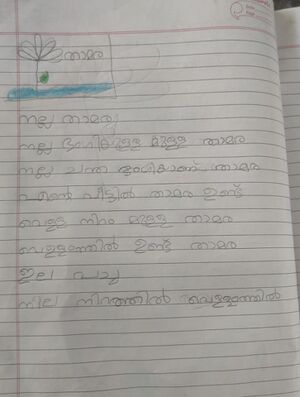 താമര
നല്ല താമര
നല്ല ഭംഗിയുള്ള മുള്ള താമര
നല്ല ചന്ത താമര
എന്റെ വീട്ടിൽ താമര ഉണ്ട്
വെള്ള നിറം മുള്ള താമര
വെള്ളത്തിൽ ഉണ്ട് താമര
ഇല പച്ച
നില നിറത്തിൽ വെള്ളത്തിൽ